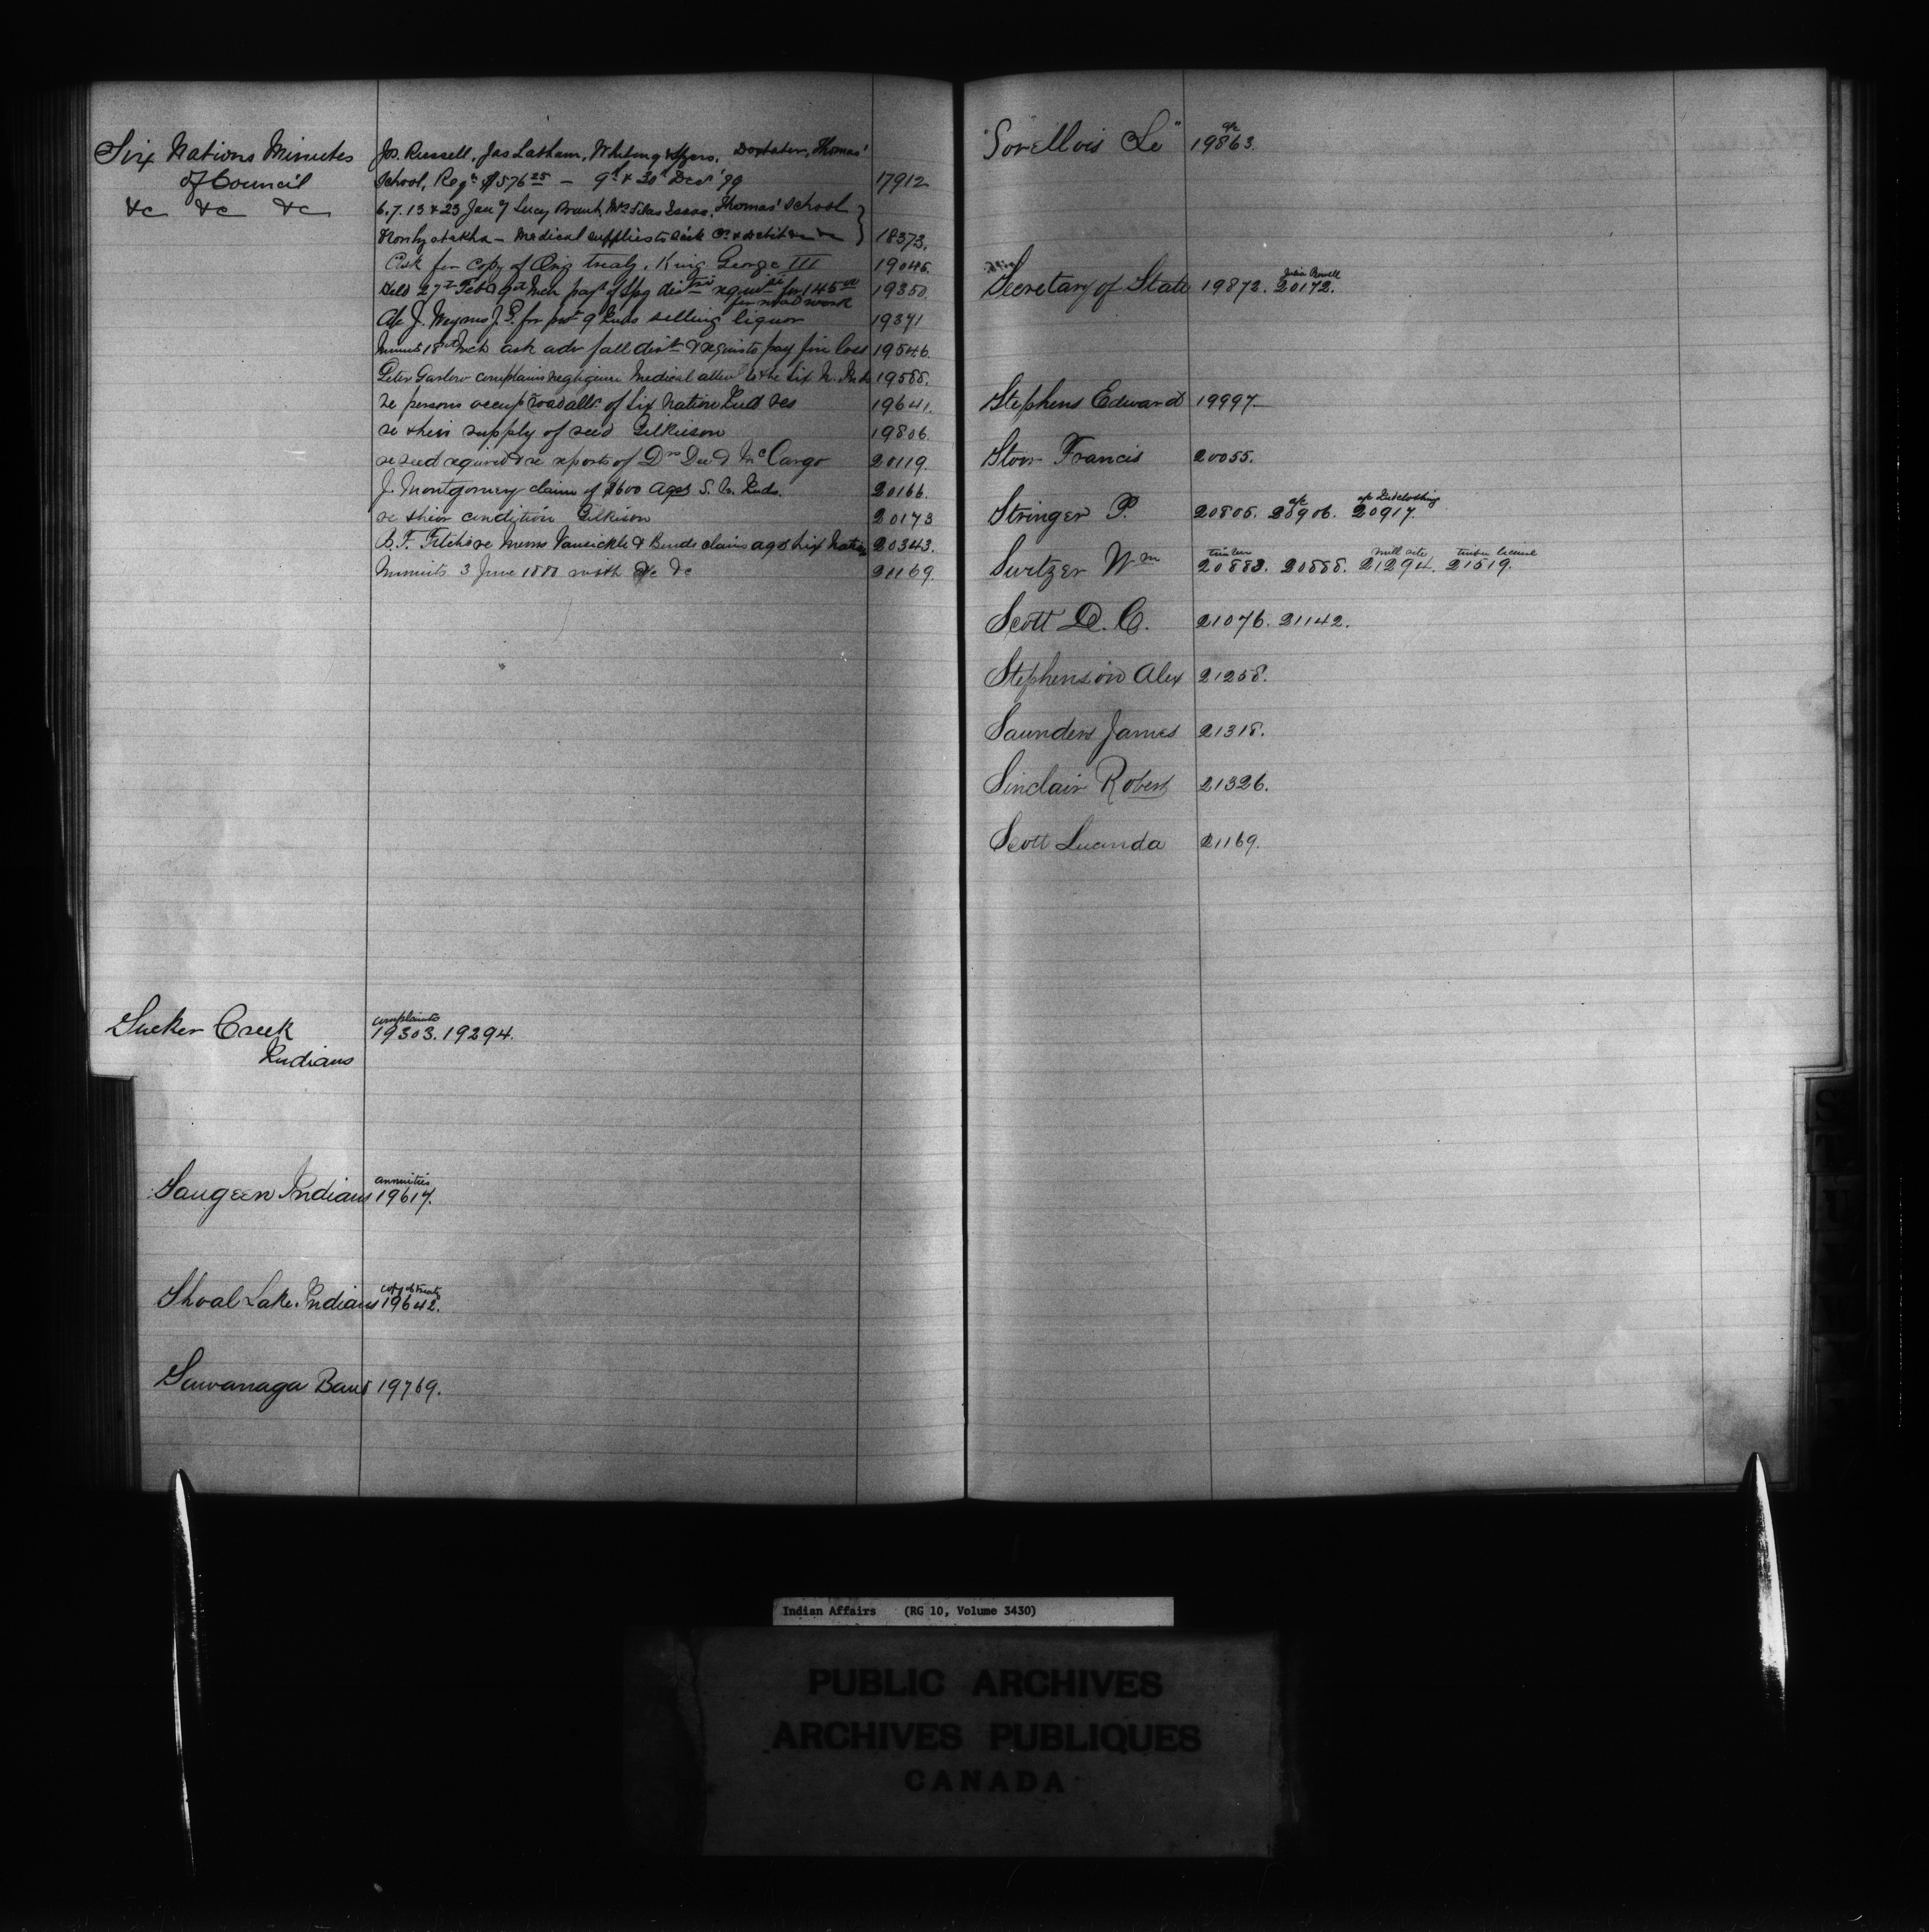 Six Nations Minutes
of Council
&c &c &c
Jos. Russell, Jas Latham, Whiting & Myers, Doxtater, Thomas'
School, Reg. $576 25 – 9th & 30th Decr '79 17912
6.7.13 & 23 Jany Lucy Brant, Mrs Silas Isaac, Thomas' School
– Medical supplies to sick 18373.
Ask for copy of Orig treaty, King George III 19045.
Held 27th Feb & 9th Mch payt of Spg dist requisite for 145 00 19350.
for road work
J. P. for selling liquor 19371
Minutes 18th Mch ask adv fall dist & requis to pay fire loss 19546.
Peter Garlow complains negligence Medical atten to the Six N. Inds 19588.
re persons occup road allce of Six Nation Ind Res 19641.
re their supply of seed Gilkison 19806.
re seed required & re reports of Drs Dee & McCargo 20119.
J. Montgomery claim of $600 agst S. N. Inds. 20166.
re their condition Gilkison 20173
B. F. Fitch re Messrs Vansickle & Binds claims agst Six Nation 20343.
Minutes 3 June 1880 with &c &c 21169.
Sucker Creek
Indians
complaints
19303. 19294.
annuities
Saugeen Indians 19617.
copy of treaty
Shoal Lake Indians 19642.
Sawanaga Band 19769.
a/c
"Sorellois Le" 19863.
Julia Powell
Secretary of State 19872. 20172.
Stephens Edward 19997
Storr Francis 20055.
a/c a/c Ind clothing
Stringer P. 20805. 20906. 20917.
timber mill site timber license
Switzer Wm 20882. 20888. 21294. 21519.
Scott D. C. 21076. 21142.
Stephenson Alex 21258.
Saunders James 21318.
Sinclair Robert 21326.
Scott Lucinda 21169.
Indian Affairs (RG 10, Volume 3430)
PUBLIC ARCHIVES
ARCHIVES PUBLIQUES
CANADA